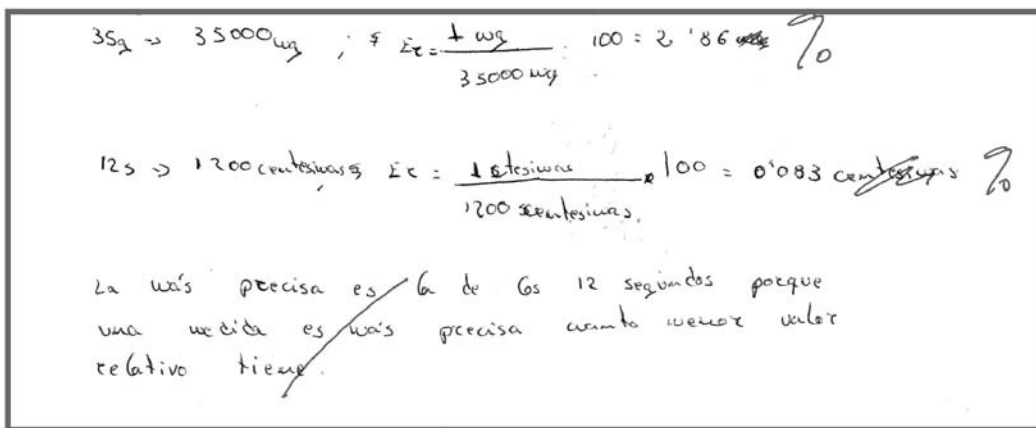 35g => 35000 mg ; Er = 1 mg / 35000 mg . 100 = 2'86 %
12s => 1200 centesimas Er = 1 / 1200 centesimas . 100 = 0'083 centesimas %
La más precisa es la de los 12 segundos porque
una medida es más precisa cuanto menor valor
relativo tiene.